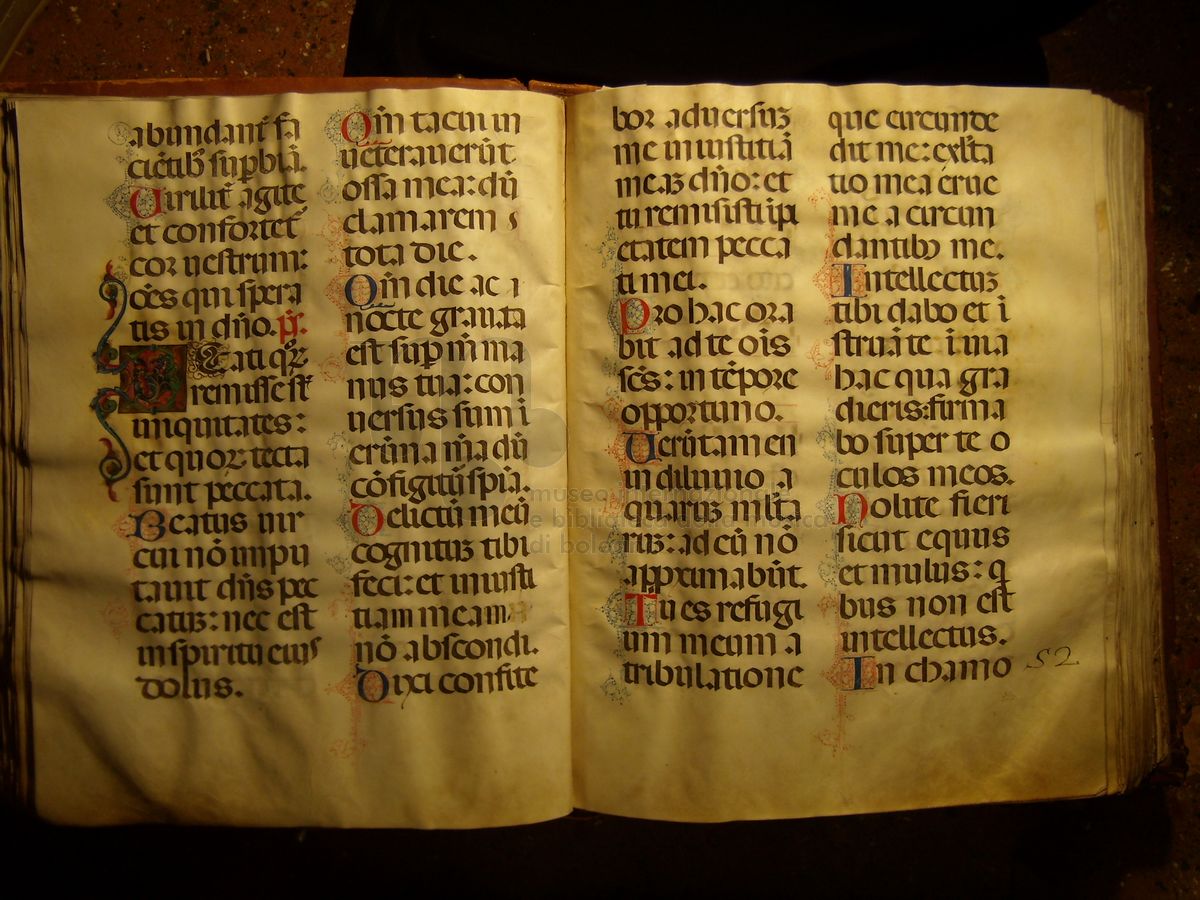 abundanť fa
ciētib⁹ suꝑbiā.
Viriliť agite
et confortet᷑
cor uestrum:
oēs qui spera
tis in dño. ps̄.
Beati quoꝝ
remisse sť
iniquitates:
et quoꝝ tecta
sunt peccata.
Beatus uir
cui nō impu
tauit dñs pec
catuꝫ: nec est
in spiritu eius
dolus.
Qm̄ tacui in
ueterauerūt
ossa mea: dū
clamarem
tota die.
Qm̄ die ac
nocte grauata
est suꝑ m̄ ma
nus tua: con
uersus sum ī
erūna m̄a dū
cōfigitū spīa.
Delictū meū
cognituꝫ tibi
feci: et iniusti
tiam meam
nō abscondi.
Dixi confite
bor aduersuꝫ
me iniustitiā
meaꝫ dño: et
tu remisisti īpi
etatem pecca
ti mei.
Pro hac ora
bit ad te oīs
scs̄: in tēpore
opportuno.
Uerūtamen
in diluuio a
quaruꝫ mlta
ruꝫ: ad eū nō
approximabūt.
Tu es refugi
um meum a
tribulatione
que circunde
dit me: exlta
tio mea erue
me a circun
dantibꝫ me.
Intellectuꝫ
tibi dabo et ī
struā te ī uia
hac qua gra
dieris: firma
bo super te o
culos meos.
Nolite fieri
sicut equus
et mulus: q̄
bus non est
intellectus.
In chamo
52
museo internazionale
e biblioteca della musica
di bologna